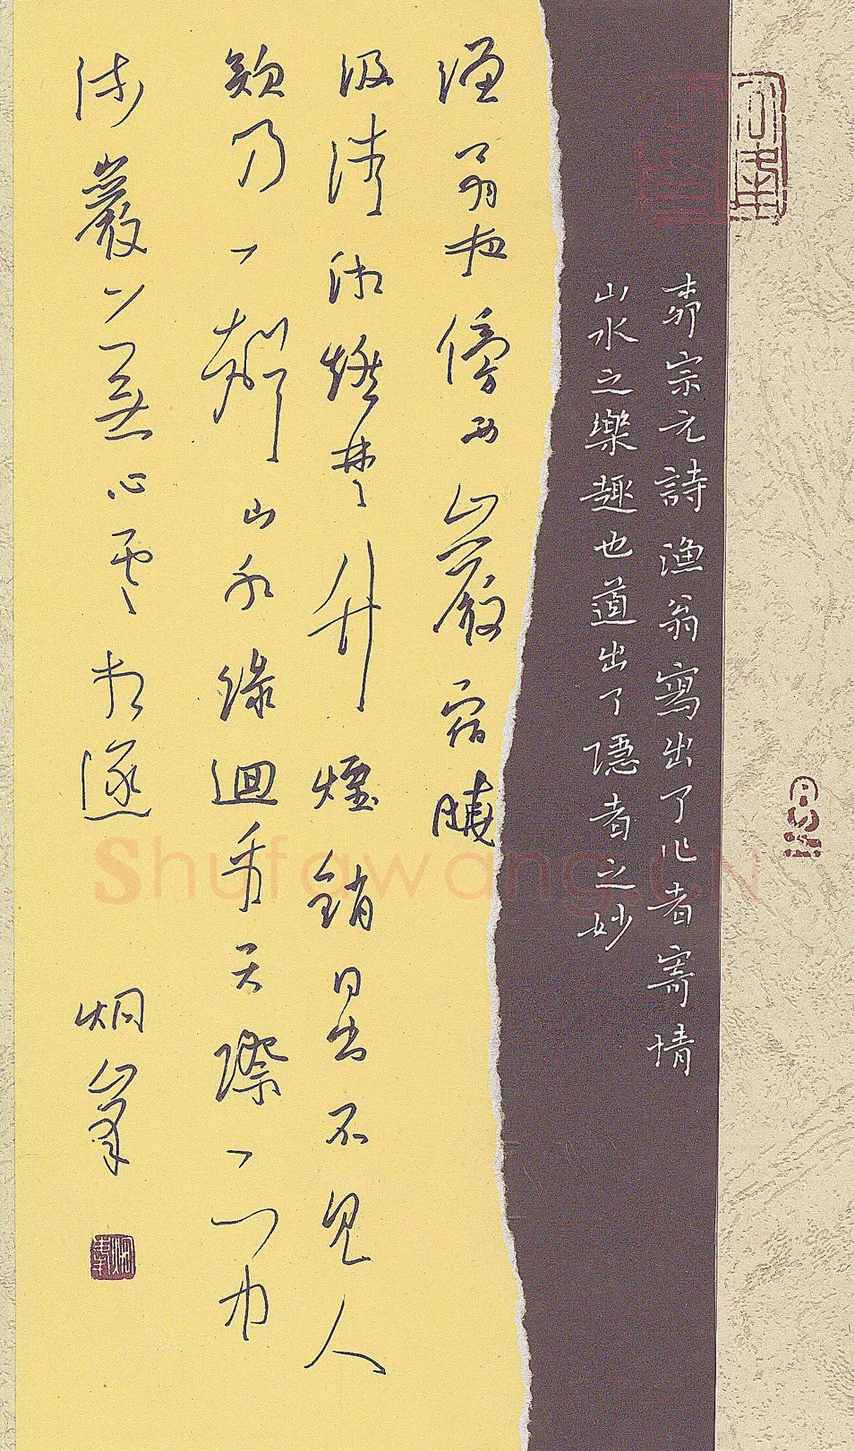 柳宗元詩漁翁寫出了作者寄情
山水之樂趣也道出了隱者之妙
漁翁夜傍西巖宿曉
汲清湘燃楚竹煙銷日出不見人
欸乃一聲山水綠迴看天際下中
流巖上無心雲相逐 炯峰
Shufawang.CN